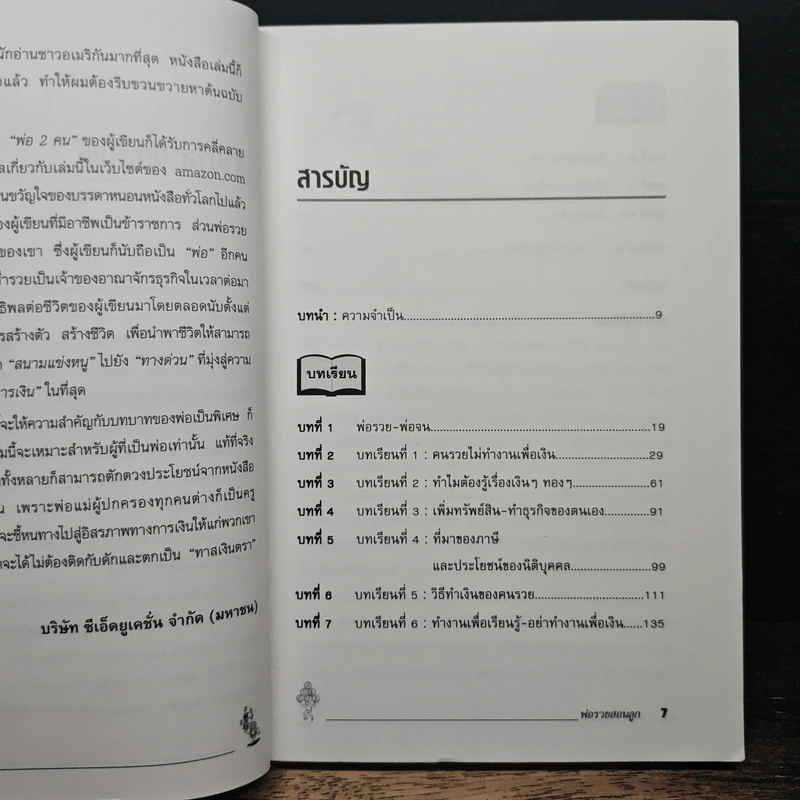 นักอ่านชาวอเมริกันมากที่สุด หนังสือเล่มนี้ก็
แล้ว ทำให้ผมต้องรีบขวนขวายหาต้นฉบับ
“พ่อ 2 คน” ของผู้เขียนก็ได้รับการคลี่คลาย
เกี่ยวกับเล่มนี้ในเว็บไซต์ของ amazon.com
ขวัญใจของบรรดาหนอนหนังสือทั่วโลกไปแล้ว
ของผู้เขียนที่มีอาชีพเป็นข้าราชการ ส่วนพ่อรวย
ของเขา ซึ่งผู้เขียนก็นับถือเป็น “พ่อ” อีกคน
ร่ำรวยเป็นเจ้าของอาณาจักรธุรกิจในเวลาต่อมา
ธิพลต่อชีวิตของผู้เขียนมาโดยตลอดนับตั้งแต่
รสร้างตัว สร้างชีวิต เพื่อนำพาชีวิตให้สามารถ
“สนามแข่งหนู” ไปยัง “ทางด่วน” ที่มุ่งสู่ความ
การเงิน” ในที่สุด
จะให้ความสำคัญกับบทบาทของพ่อเป็นพิเศษ ก็
มนี้จะเหมาะสำหรับผู้ที่เป็นพ่อเท่านั้น แท้ที่จริง
ทั้งหลายก็สามารถตักตวงประโยชน์จากหนังสือ
น เพราะพ่อแม่ผู้ปกครองทุกคนต่างก็เป็นครู
จะชี้หนทางไปสู่อิสรภาพทางการเงินให้แก่พวกเขา
จะได้ไม่ต้องติดกับดักและตกเป็น “ทาสเงินตรา”
บริษัท ซีเอ็ดยูเคชั่น จำกัด (มหาชน)
สารบัญ
บทนำ : ความจำเป็น...9
บทเรียน
บทที่ 1 พ่อรวย-พ่อจน...19
บทที่ 2 บทเรียนที่ 1 : คนรวยไม่ทำงานเพื่อเงิน...29
บทที่ 3 บทเรียนที่ 2 : ทำไมต้องรู้เรื่องเงินๆ ทองๆ...61
บทที่ 4 บทเรียนที่ 3 : เพิ่มทรัพย์สิน-ทำธุรกิจของตนเอง...91
บทที่ 5 บทเรียนที่ 4 : ที่มาของภาษี
และประโยชน์ของนิติบุคคล...99
บทที่ 6 บทเรียนที่ 5 : วิธีทำเงินของคนรวย...111
บทที่ 7 บทเรียนที่ 6 : ทำงานเพื่อเรียนรู้-อย่าทำงานเพื่อเงิน...135
พ่อรวยสอนลูก 7